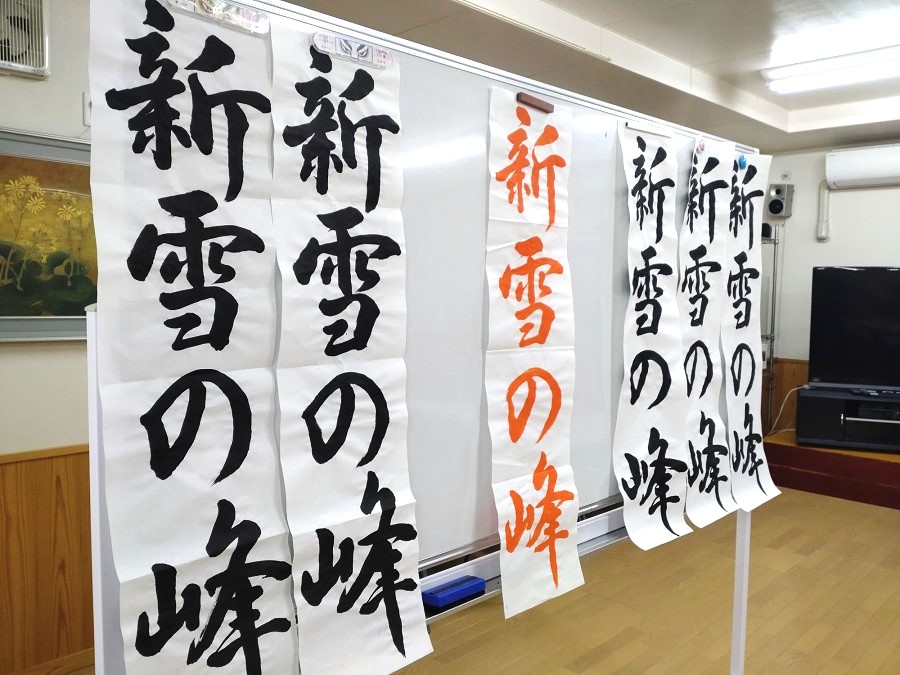 新雪の峰
新雪の峰
新雪の峰
新雪の峰
新雪の峰
新雪の峰